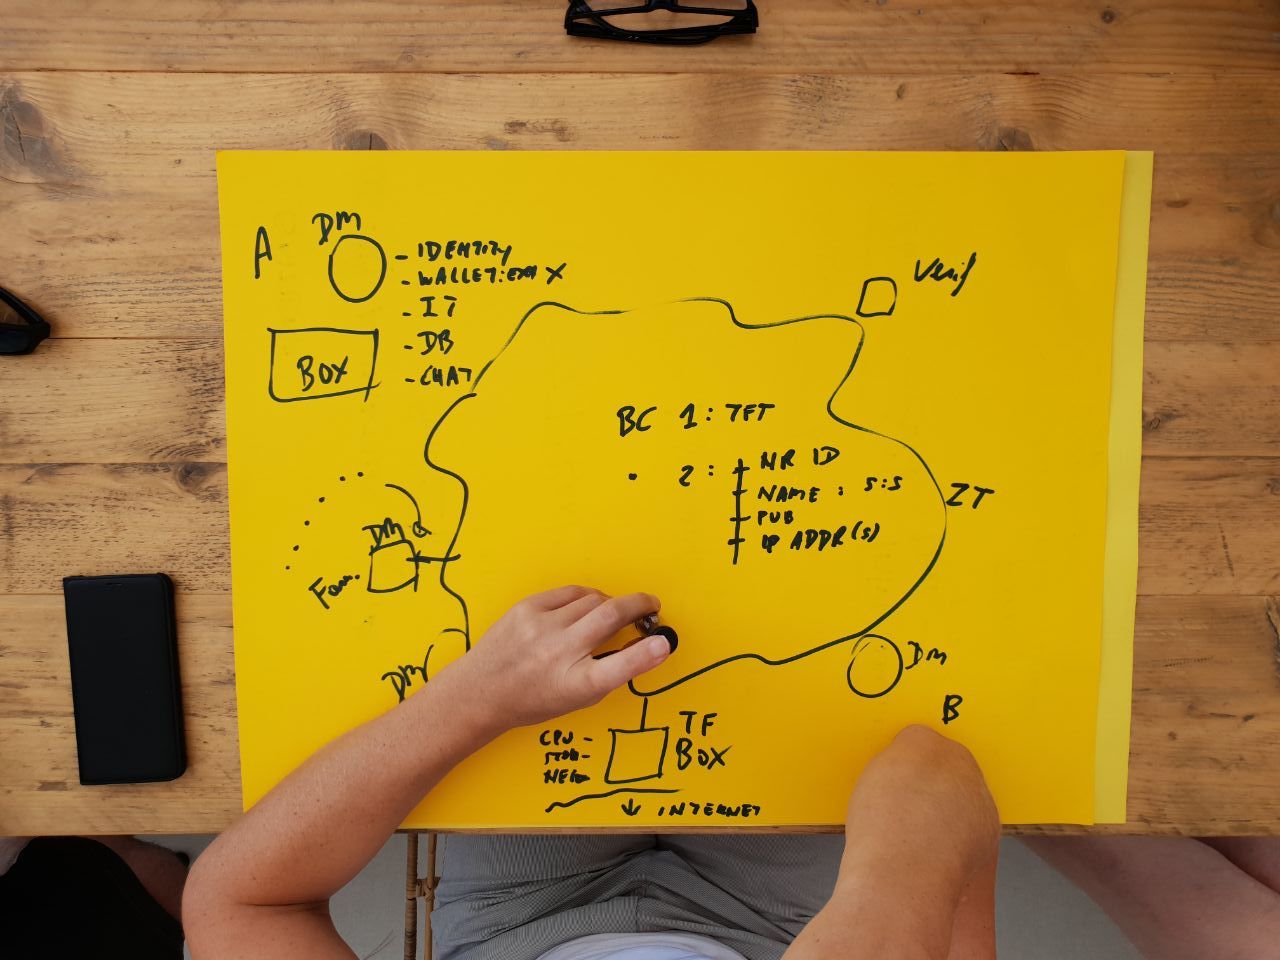 A
DM
- IDENTITY
- WALLET: X
- IT
- DB
- CHAT
BOX
Verif
BC 1: TFT
. 2: NR ID
NAME : S:S
PUB
IP ADDR(S)
ZT
DM
Fam.
DM
DM
B
TF
BOX
CPU -
NE
↓ INTERNET